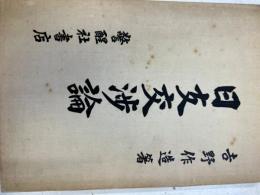 吉野作造著
日支交渉論
警醒社書店